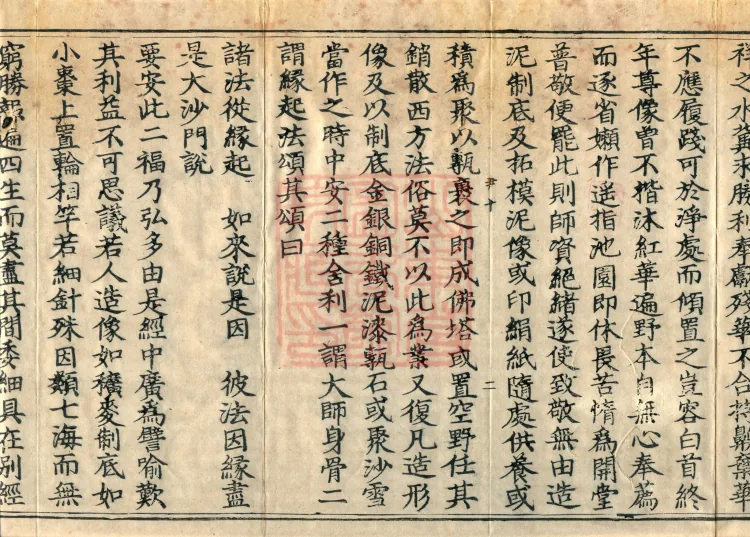 祥之水冀求勝利奉獻殘華不合持觸藥華
不應履踐可於淨處而傾置之豈容白首終
年尊像曾不揩沐紅華遍野本自無心奉薦
而逐省嬾作遥指池園即休畏苦惰為開堂
普敬便罷此則師資絕緒遂使致敬無由造
泥制底及拓模泥像或印絹紙隨處供養或
積為聚以甎裹之即成佛塔或置空野任其
銷散西方法俗莫不以此為業又復凡造形
像及以制底金銀銅鐵泥漆甎石或聚沙雪
當作之時中安二種舍利一謂大師身骨二
謂緣起法頌其頌曰
諸法從緣起 如來說是因 彼法因緣盡
是大沙門說
要安此二福乃弘多由是經中廣為譬喻歎
其利益不可思議若人造像如穬麥制底如
小棗上置輪相竿若細針殊因類七海而無
窮勝報遍四生而莫盡其間委細具在別經
尹十
二